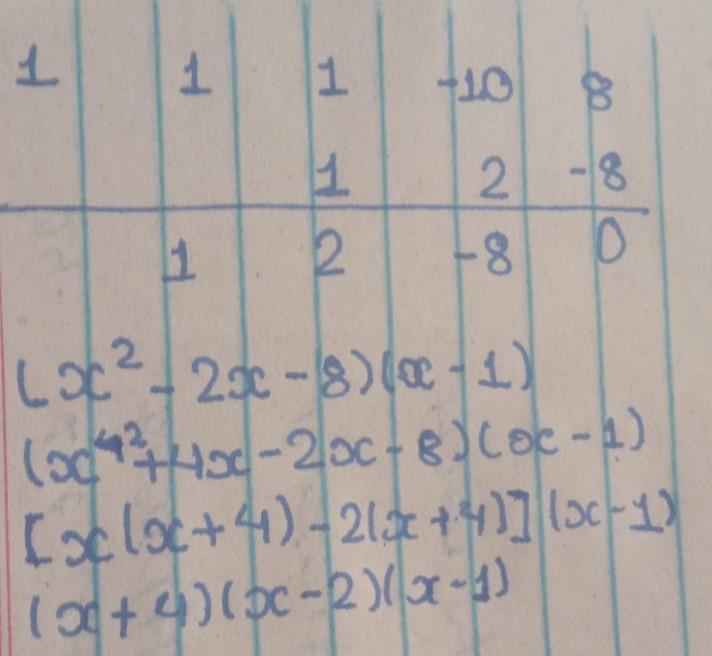 1 1 1 -10 8
1 2 -8
1 2 -8 0
(x² - 2x - 8)(x - 1)
(x² + 4x - 2x - 8)(x - 1)
[x(x + 4) - 2(x + 4)](x - 1)
(x + 4)(x - 2)(x - 1)